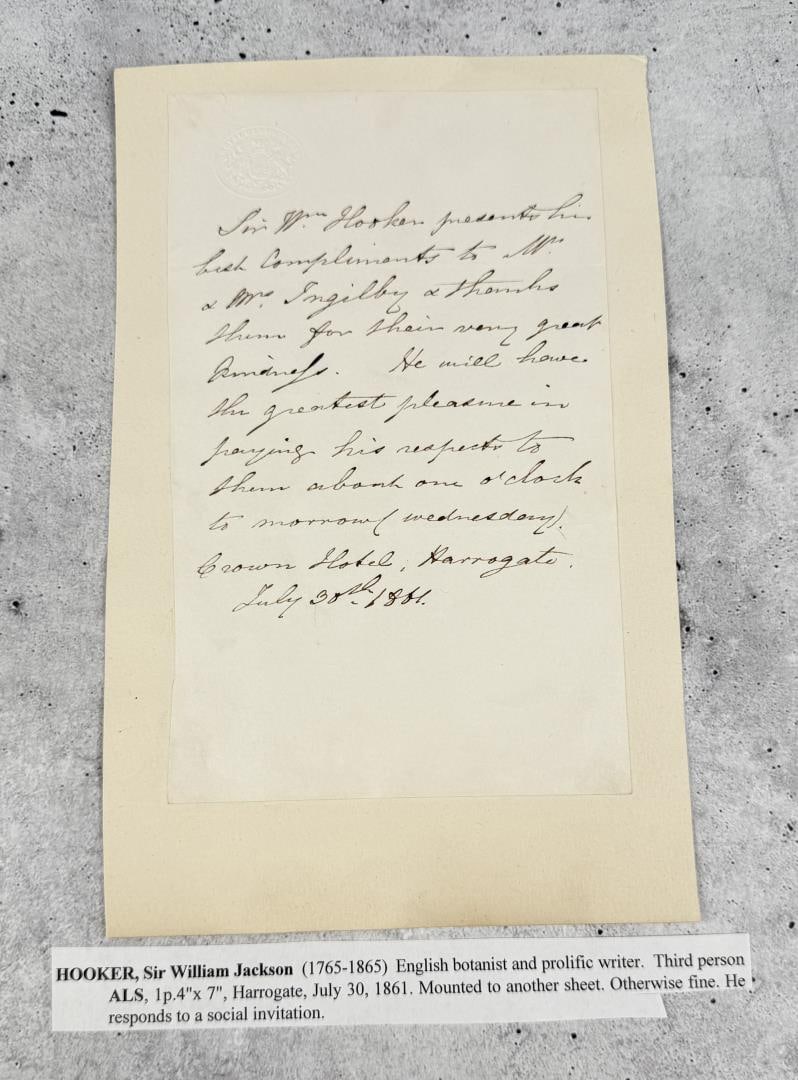 Sir Wm Hooker presents his
best Compliments to Mr.
& Mrs. Ingilby & thanks
them for their very great
kindness. He will have
the greatest pleasure in
paying his respects to
them about one o'clock
to morrow (wednesday).
Crown Hotel, Harrogate.
July 30th 1861.
HOOKER, Sir William Jackson (1765-1865) English botanist and prolific writer. Third person
ALS, 1p.4"x 7", Harrogate, July 30, 1861. Mounted to another sheet. Otherwise fine. He
responds to a social invitation.